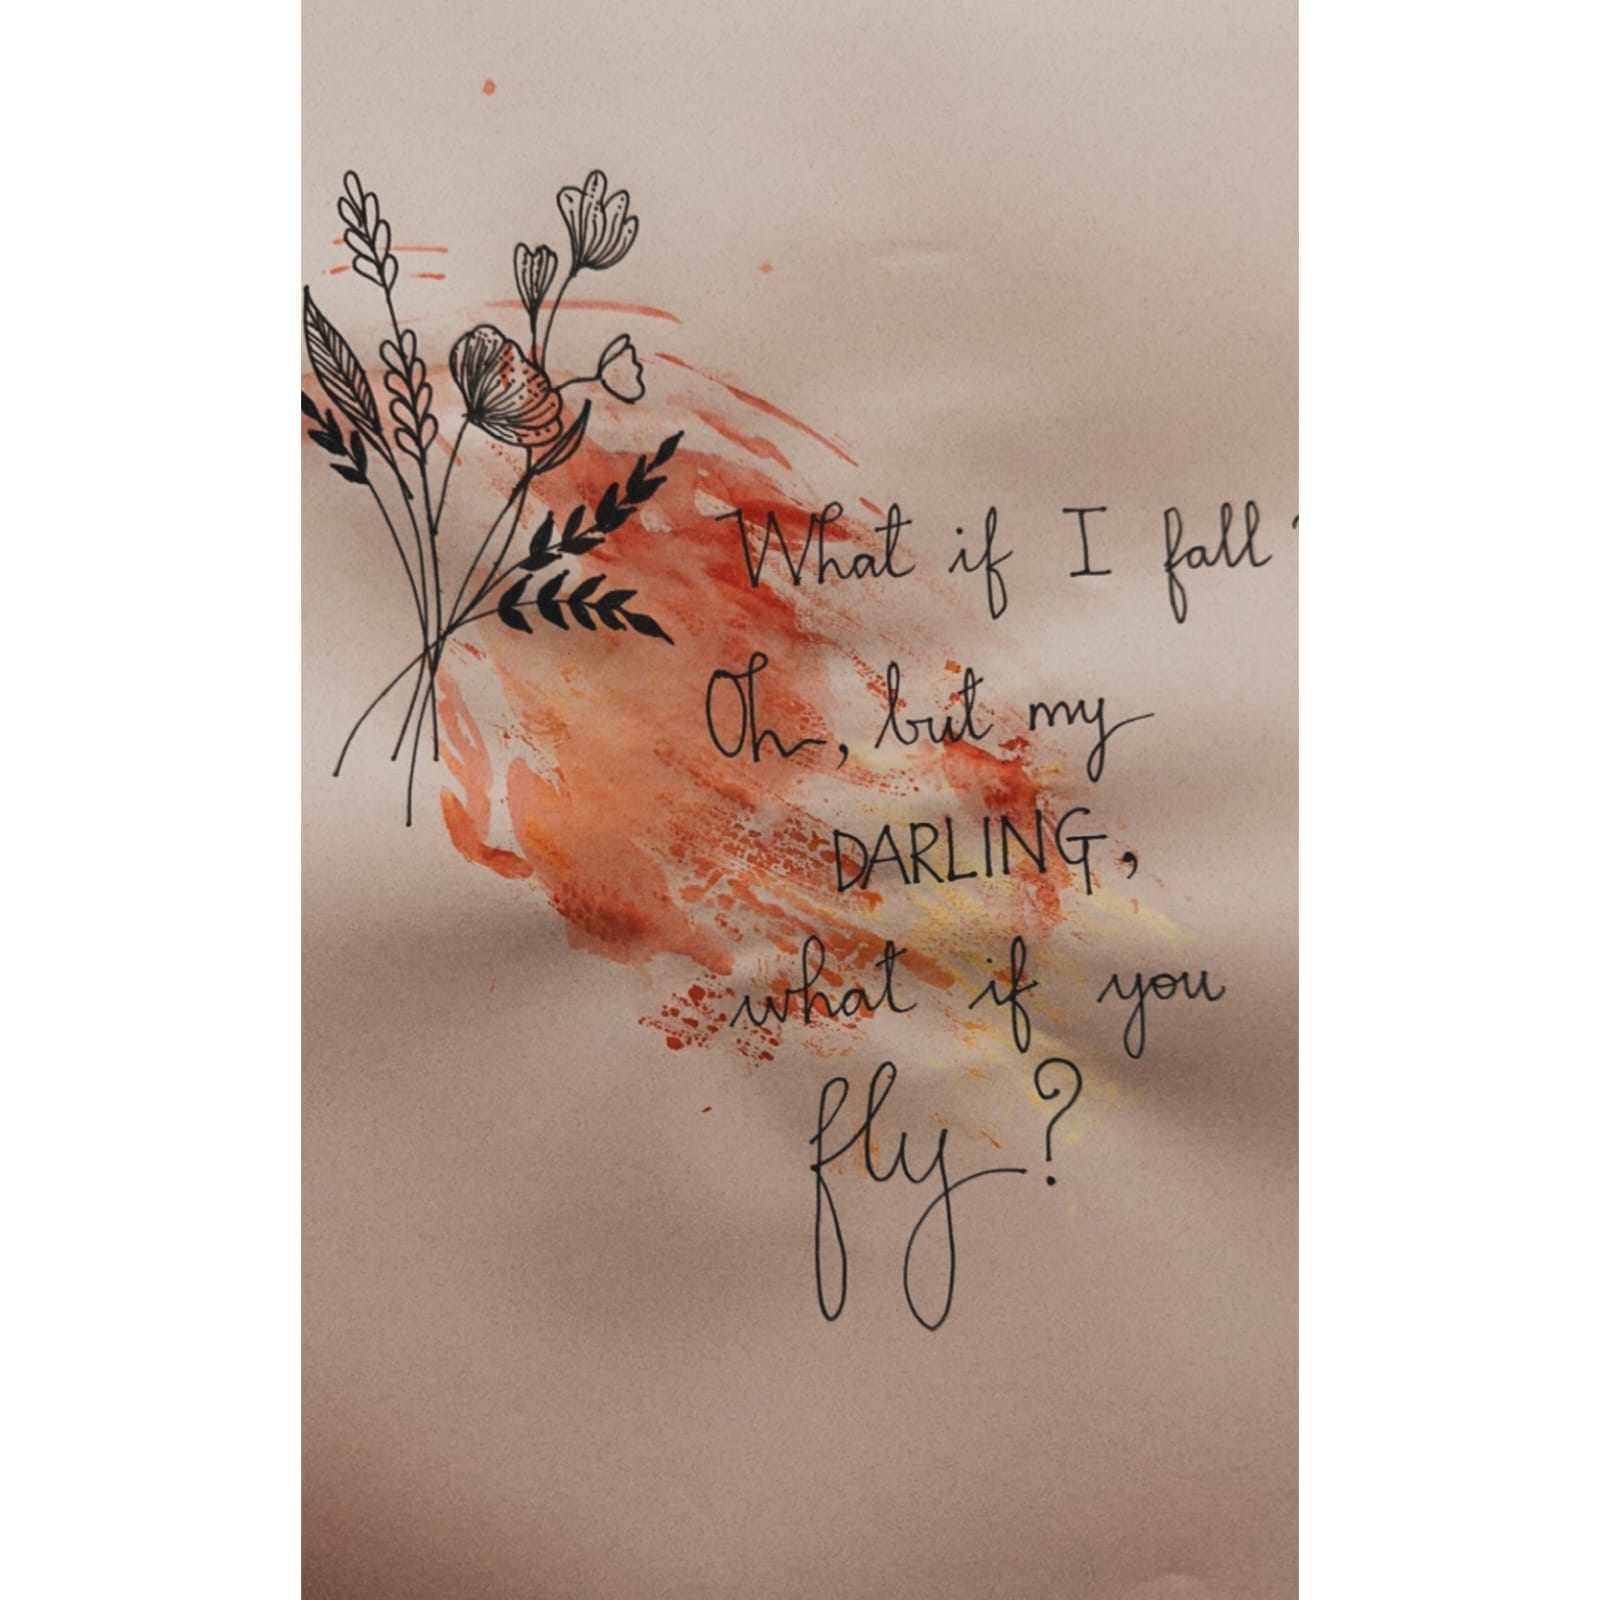 What if I fall?
Oh, but my
DARLING,
what if you
fly?